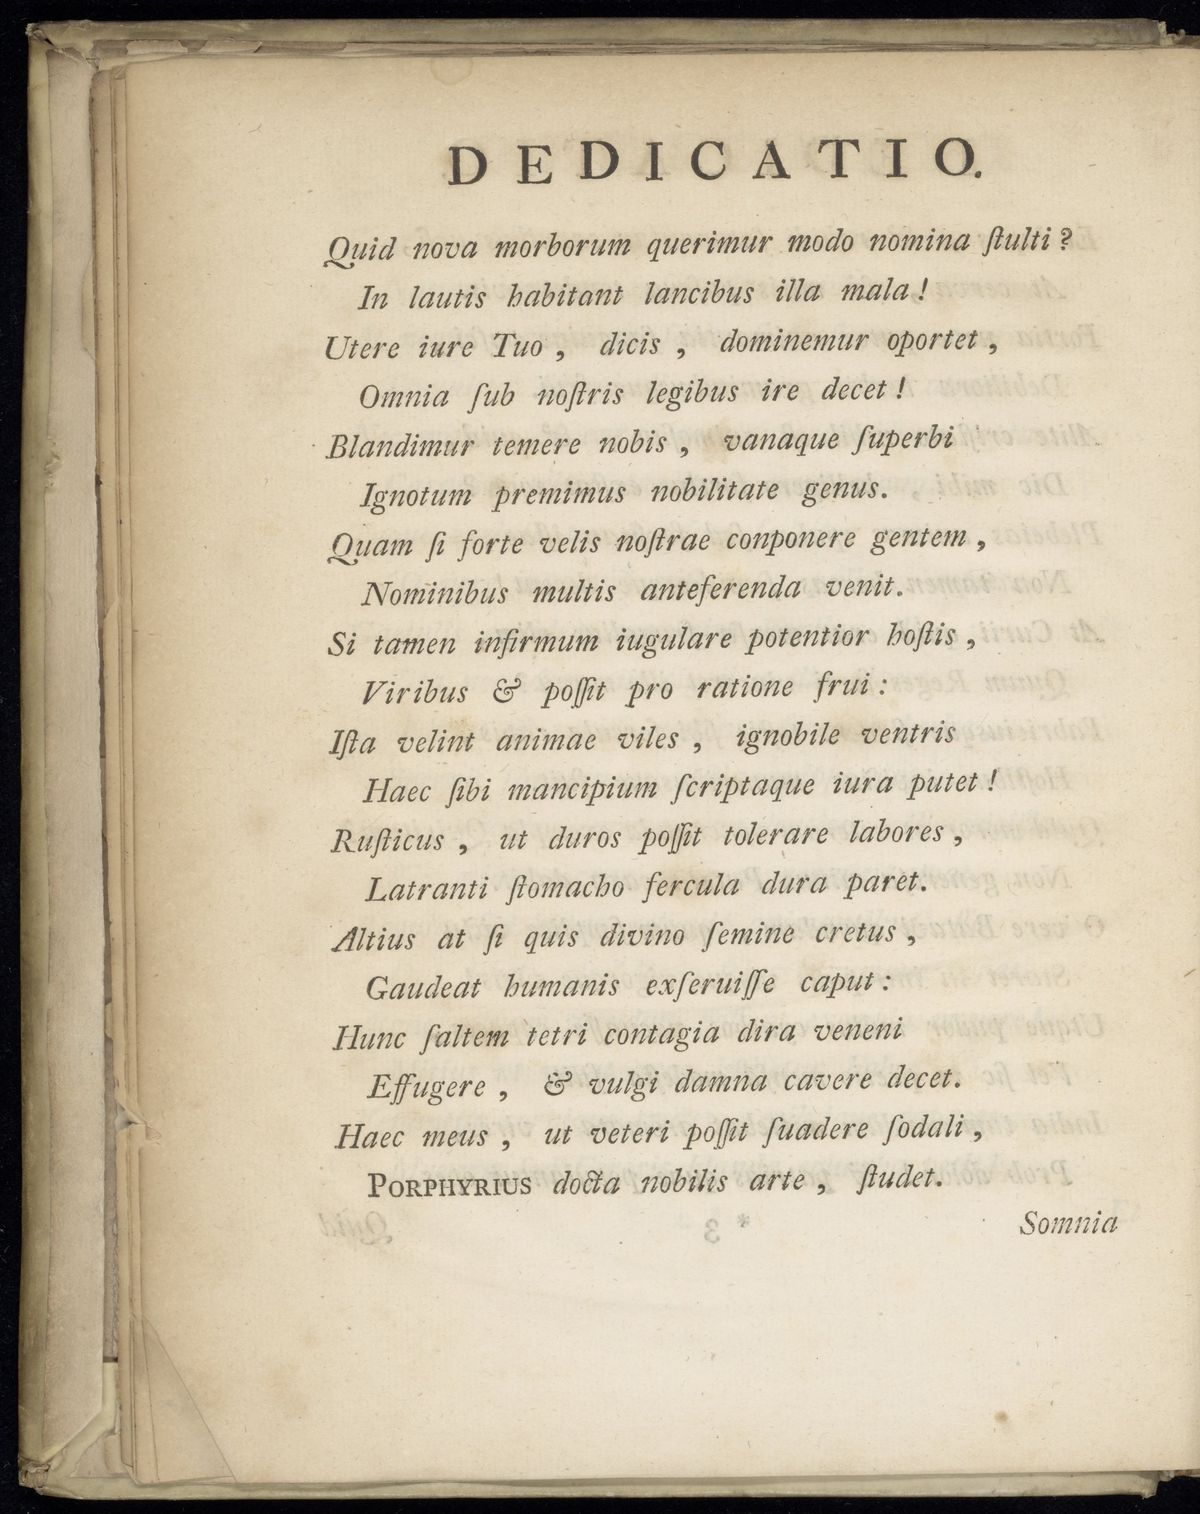 DEDICATIO.
Quid nova morborum querimur modo nomina ſtulti?
In lautis habitant lancibus illa mala!
Utere iure Tuo, dicis, dominemur oportet,
Omnia ſub noſtris legibus ire decet!
Blandimur temere nobis, vanaque ſuperbi
Ignotum premimus nobilitate genus.
Quam ſi forte velis noſtrae conponere gentem,
Nominibus multis anteferenda venit.
Si tamen infirmum iugulare potentior hoſtis,
Viribus & poſſit pro ratione frui:
Iſta velint animae viles, ignobile ventris
Haec ſibi mancipium ſcriptaque iura putet!
Ruſticus, ut duros poſſit tolerare labores,
Latranti ſtomacho fercula dura paret.
Altius at ſi quis divino ſemine cretus,
Gaudeat humanis exſeruiſſe caput:
Hunc ſaltem tetri contagia dira veneni
Effugere, & vulgi damna cavere decet.
Haec meus, ut veteri poſſit ſuadere ſodali,
PORPHYRIUS docta nobilis arte, ſtudet.
Somnia